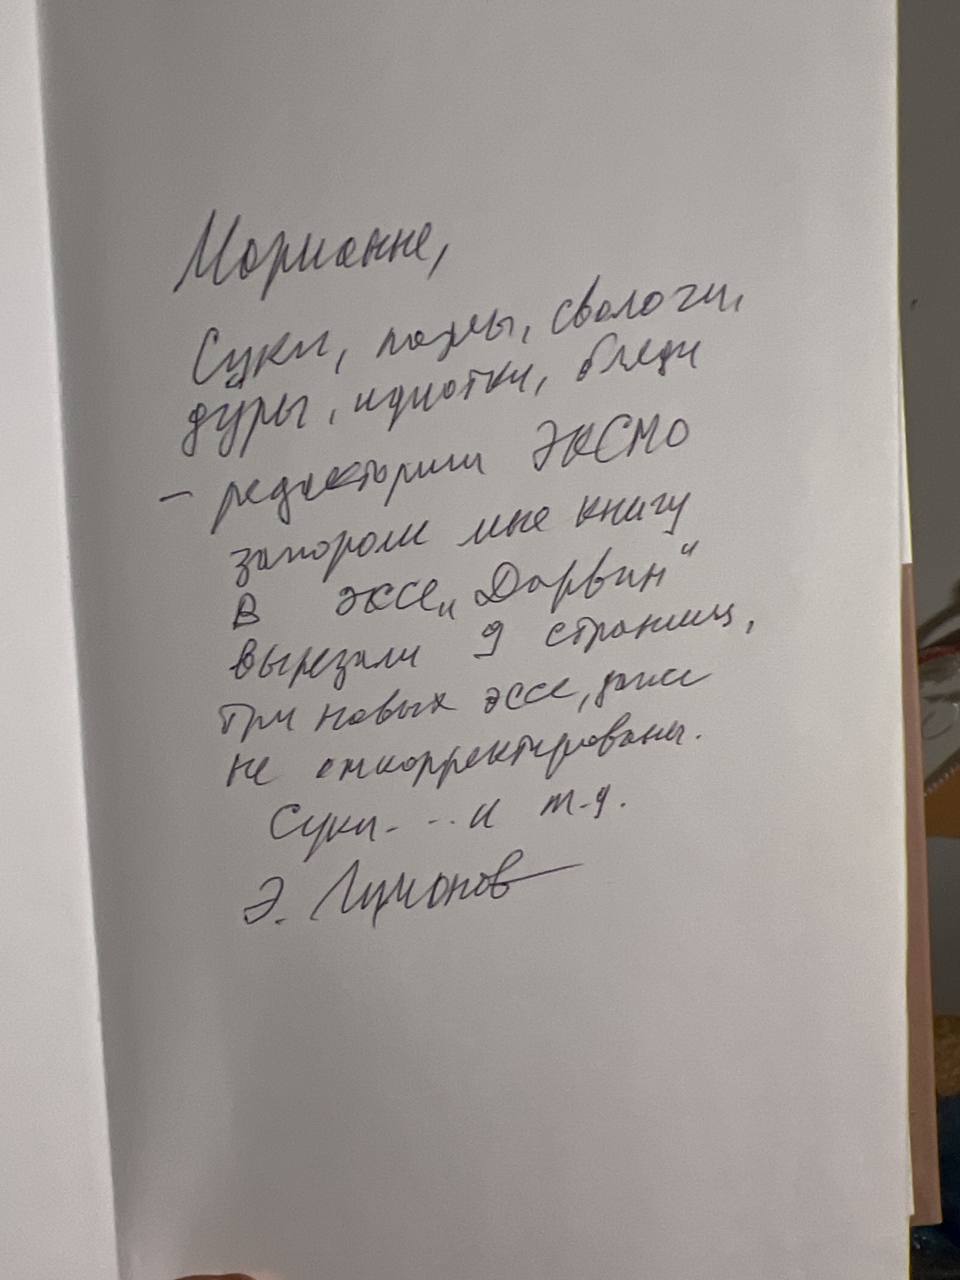 Марианне,
Суки, падлы, сволочи,
дуры, идиотки, бляди
— редакторши ЭКСМО
запороли мне книгу
В эссе „Дарвин"
вырезали 9 страниц,
три новых эссе, даже
не откорректированы.
Суки- - .. и т-д.
Э. Лимонов